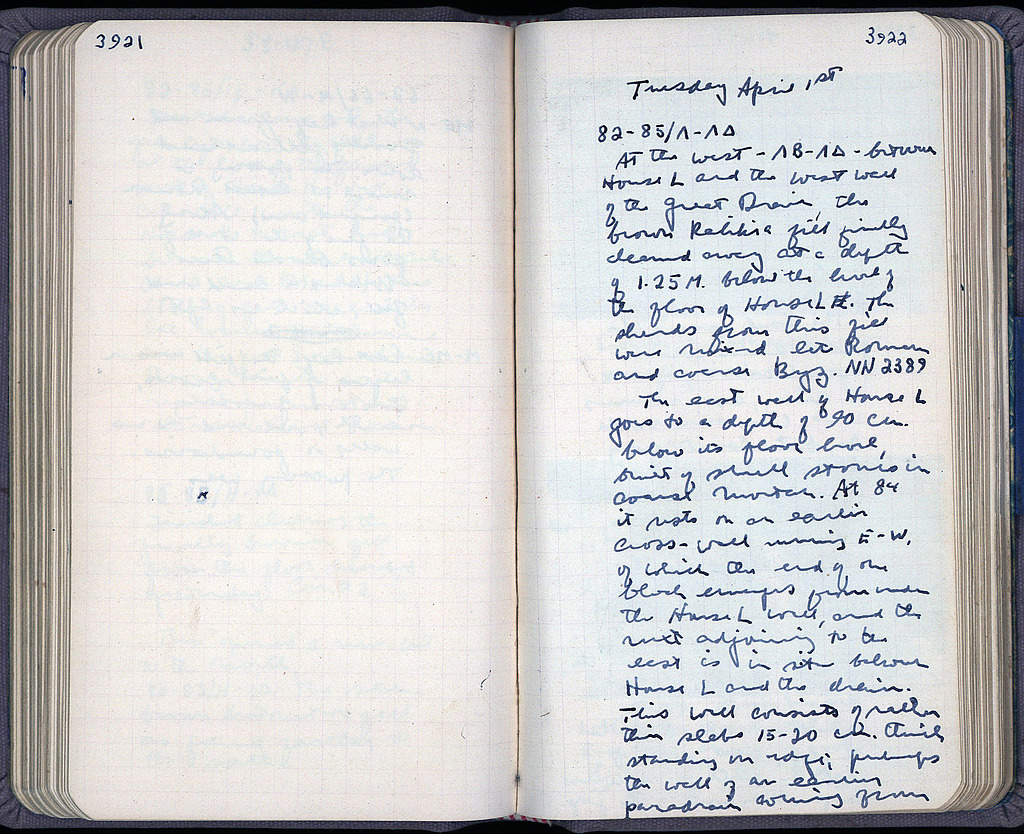 3921
3922
Tuesday April 1st
82-85/Λ-ΛΔ
At the west - ΛB-ΛΔ - between
House L and the west wall
of the Great Drain, the
brown fill finally
cleaned away at a depth
of 1.25 M. below the level of
the floor of House L. The
sherds from this fill
were mixed late Roman
and coarse Byz. NN 2389
The east wall of House L
goes to a depth of 90 cm.
below its floor level,
built of small stones in
coarse mortar. At 84
it rests on an earlier
cross-wall running E-W,
of which the end of one
block emerges from under
the House L wall, and the
next adjoining to the
east is in situ between
House L and the drain.
This wall consists of rather
thin slabs 15-20 cm. thick
standing on edge; perhaps
the wall of an earlier
coming from